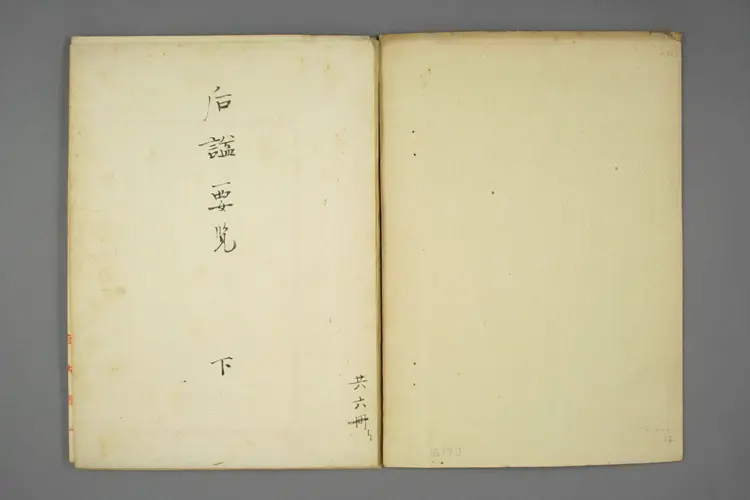 后謚要覧
下
共六冊